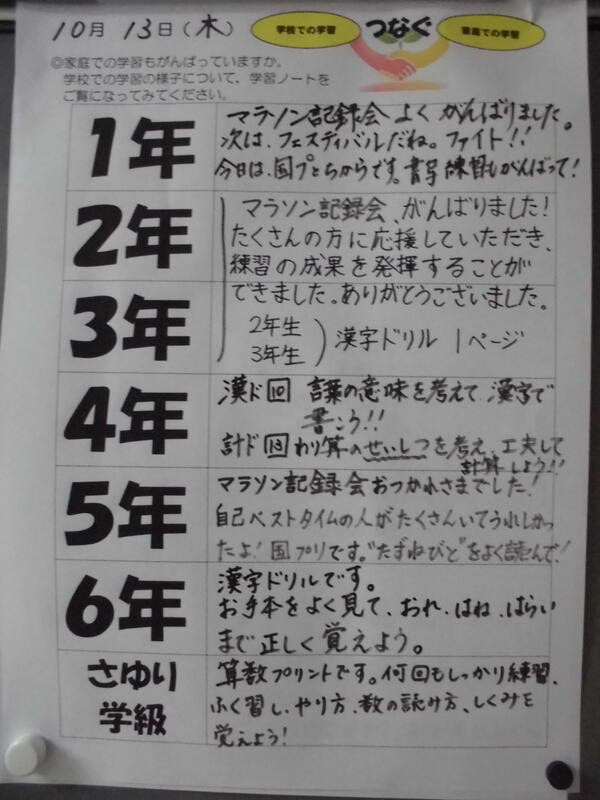 10月 13日(木)
学校での学習
つなぐ
家庭での学習
◎家庭での学習もがんばっていますか。
学校での学習の様子について、学習ノートを
ご覧になってみてください。
1年
マラソン記録会 よく がんばりました。
次は、フェスティバルだね。ファイト!!
今日は、国プとちからです。書写練習もがんばって!
2年
3年
マラソン記録会、がんばりました!
たくさんの方に応援していただき、
練習の成果を発揮することが
できました。ありがとうございました。
2年生
3年生
漢字ドリル 1ページ
4年
漢ド⑩ 言葉の意味を考えて 漢字で
書こう!!
計ド⑬ わり算のせいしつを考え、工夫して
計算しよう!!
5年
マラソン記録会おつかれさまでした!
自己ベストタイムの人がたくさんいてうれしかっ
たよ!国プリです。"たずねびと"をよく読んで!
6年
漢字ドリルです。
お手本をよく見て、おれ、はね、はらい
まで正しく覚えよう。
さゆり
学級
算数プリントです。何回もしっかり練習、
ふく習し、やり方、数の読み方、しくみを
覚えよう!